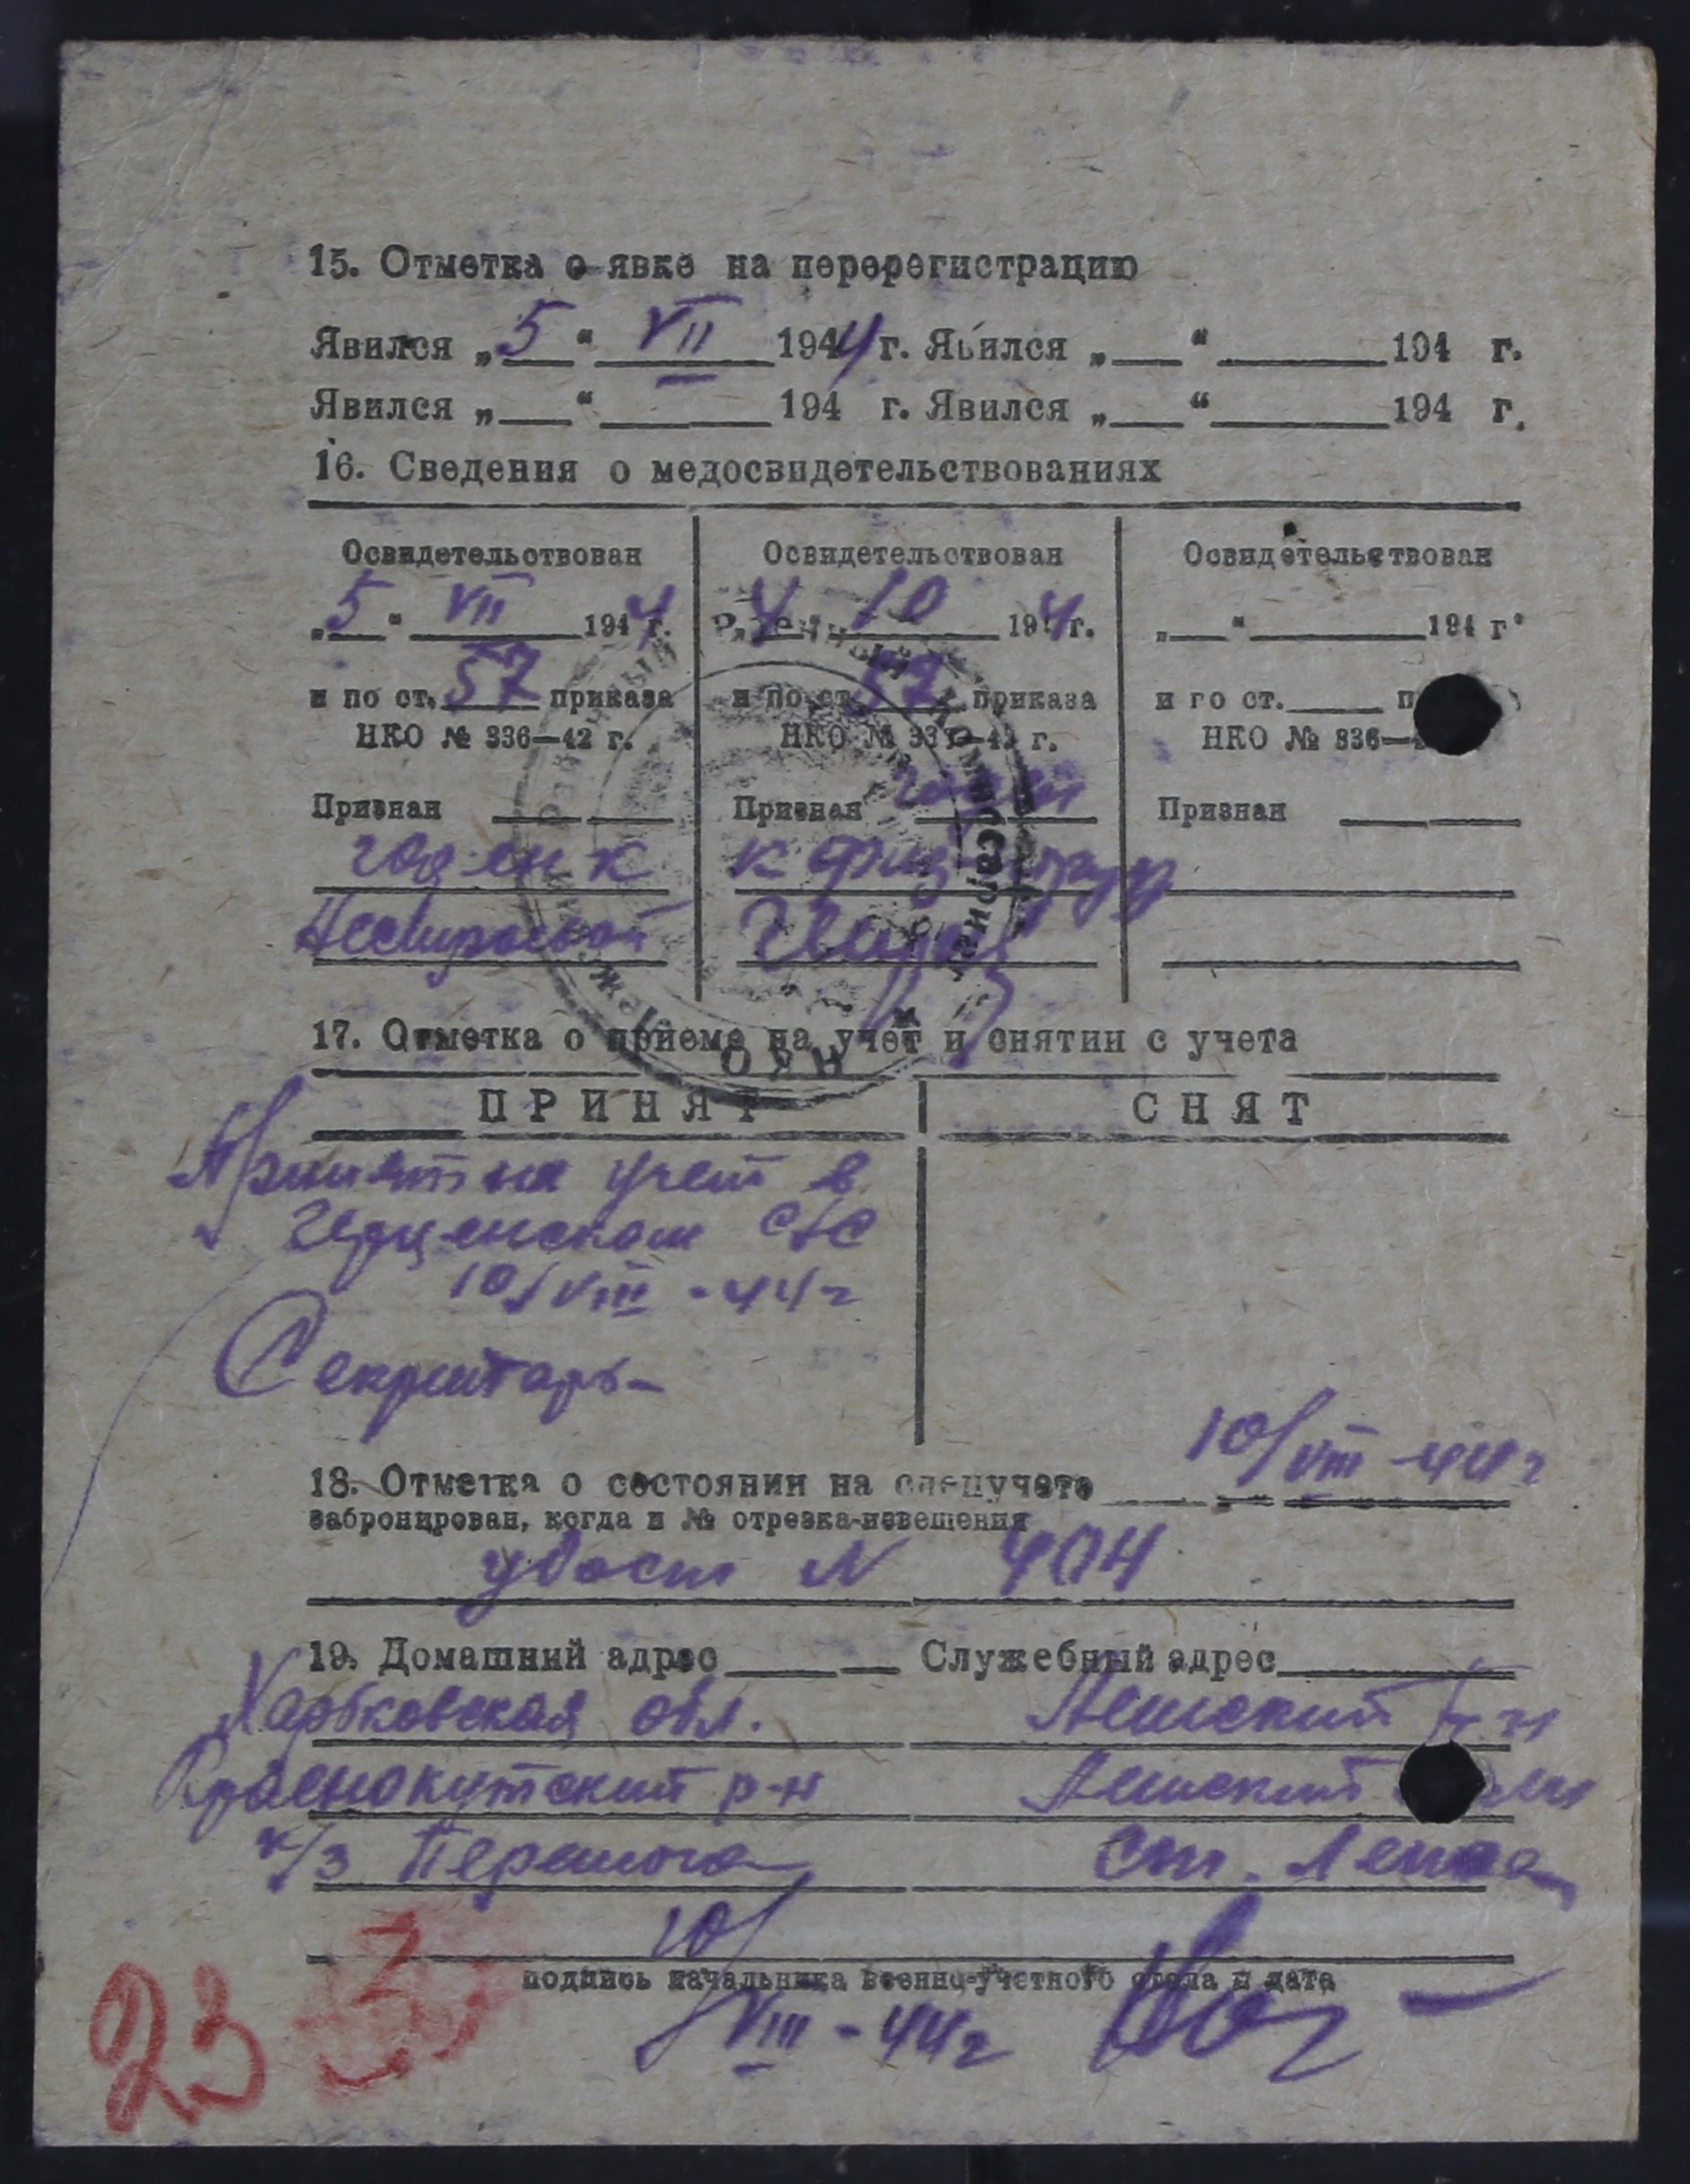 15. Отметка о явке на перерегистрацию
Явился „5“ VII 1944 г. Явился „__“ ____ 194 г.
Явился „__“ ____ 194 г. Явился „__“ ____ 194 г.
16. Сведения о медосвидетельствованиях
Освидетельствован
„5“ VII 1944 г.
и по ст. 57 приказа
НКО № 336—42 г.
Признан
годен к
нестроевой
Освидетельствован
„4“ 10 1944 г.
и по ст. 57 приказа
НКО № 336—42 г.
Признан годен
к физ. труду
Освидетельствован
„__“ ____ 194 г.
и по ст. ____ п
НКО № 336—
Признан
17. Отметка о приеме на учет и снятии с учета
ПРИНЯТ СНЯТ
Принят на учет в
10/VIII-44г
Секретарь
18. Отметка о состоянии на спецучете 10/VIII-44г
забронирован, когда и № отрезка-извещения
удост N 404
19. Домашний адрес ____ Служебный адрес ____
Харьковская обл.
Краснокутский р-н
к/з Перемога
р-н
ст.
подпись начальника военно-учетного стола и дата
10/VIII-44г
23